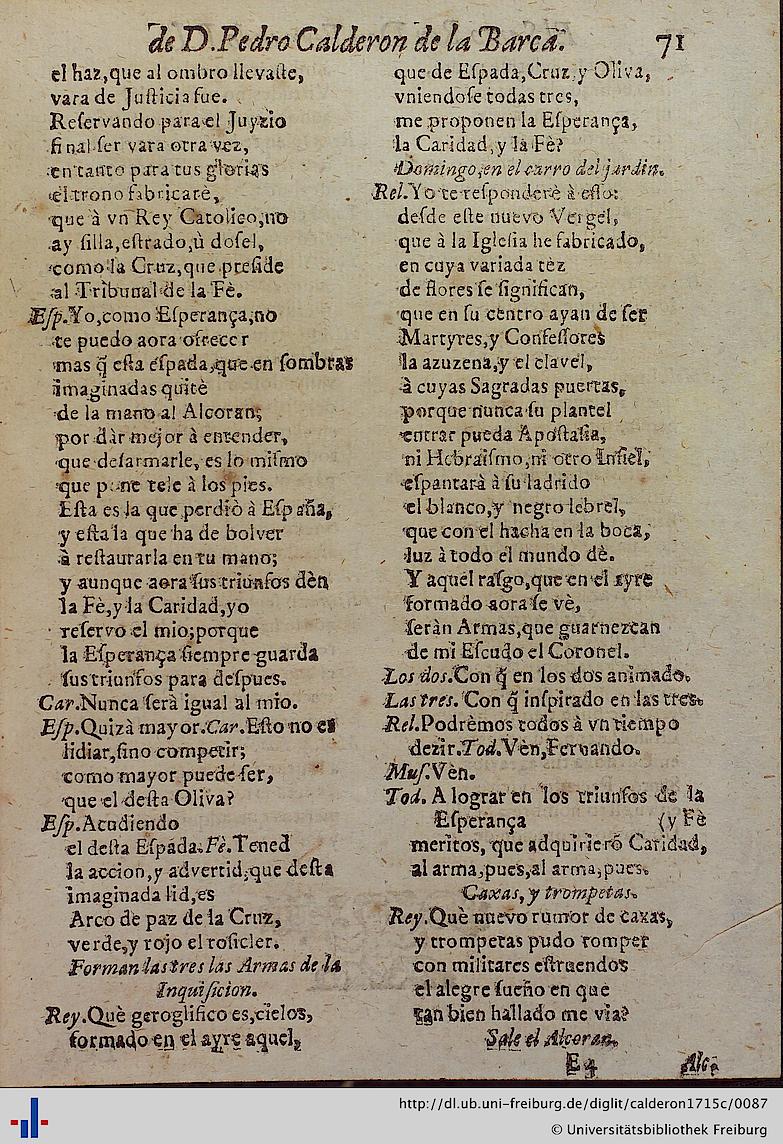 de D. Pedro Calderon de la Barca. 71
el haz, que al ombro llevaſte,
vara de Juſticia fue.
Reſervando para el Juyzio
final ſer vara otra vez,
en tanto para tus glorias
el trono fabricarè,
que à vn Rey Catolico, no
ay ſilla, eſtrado, ù doſel,
como la Cruz, que preſide
al Tribunal de la Fè.
Eſp. Yo, como Eſperança, no
te puedo aora ofrecer
mas q̃ eſta eſpada, que en ſombras
imaginadas quitè
de la mano al Alcoran;
por dàr mejor à entender,
que deſarmarle, es lo miſmo
que ponerele à los pies.
Eſta es la que perdiò à Eſpaña,
y eſta la que ha de bolver
à reſtaurarla en tu mano;
y aunque aora ſus triunfos dèn
la Fè, y la Caridad, yo
reſervo el mio; porque
la Eſperança ſiempre guarda
ſus triunfos para deſpues.
Car. Nunca ſerà igual al mio.
Eſp. Quizà mayor. Car. Eſto no es
lidiar, ſino competir;
como mayor puede ſer,
que el deſta Oliva?
Eſp. Acudiendo
el deſta Eſpada. Fè. Tened
la accion, y advertid, que deſta
imaginada lid, es
Arco de paz de la Cruz,
verde, y rojo el roſicler.
Forman las tres las Armas de la
Inquiſicion.
Rey. Què geroglifico es, cielos,
formado en el ayre aquel,
que de Eſpada, Cruz, y Oliva,
vniendoſe todas tres,
me proponen la Eſperança,
la Caridad, y la Fè?
Domingo, en el carro del jardin.
Rel. Yo te reſponderè à eſſo:
deſde eſte nuevo Vergel,
que à la Igleſia he fabricado,
en cuya variada tèz
de flores ſe ſignifican,
que en ſu centro ayan de ſer
Martyres, y Confeſſores
la azuzena, y el clavel,
à cuyas Sagradas puertas,
porque nunca ſu plantel
entrar pueda Apoſtaſia,
ni Hebraiſmo, ni otro Infiel,
eſpantarà à ſu ladrido
el blanco, y negro lebrel,
que con el hacha en la boca,
luz à todo el mundo dè.
Y aquel raſgo, que en el ayre
formado aora ſe vè,
ſeràn Armas, que guarnezcan
de mi Eſcudo el Coronel.
Los dos. Con q̃ en los dos animado.
Las tres. Con q̃ inſpirado en las tres.
Rel. Podrèmos todos à vn tiempo
dezir. Tod. Vèn, Fernando.
Muſ. Vèn.
Tod. A lograr en los triunfos de la
Eſperança (y Fè
meritos, que adquirierõ Caridad,
al arma, pues, al arma, pues.
Caxas, y trompetas.
Rey. Què nuevo rumor de caxas,
y trompetas pudo romper
con militares eſtruendos
el alegre ſueño en que
tan bien hallado me via?
Sale el Alcoran.
E4 Alc.
http://dl.ub.uni-freiburg.de/diglit/calderon1715c/0087
© Universitätsbibliothek Freiburg